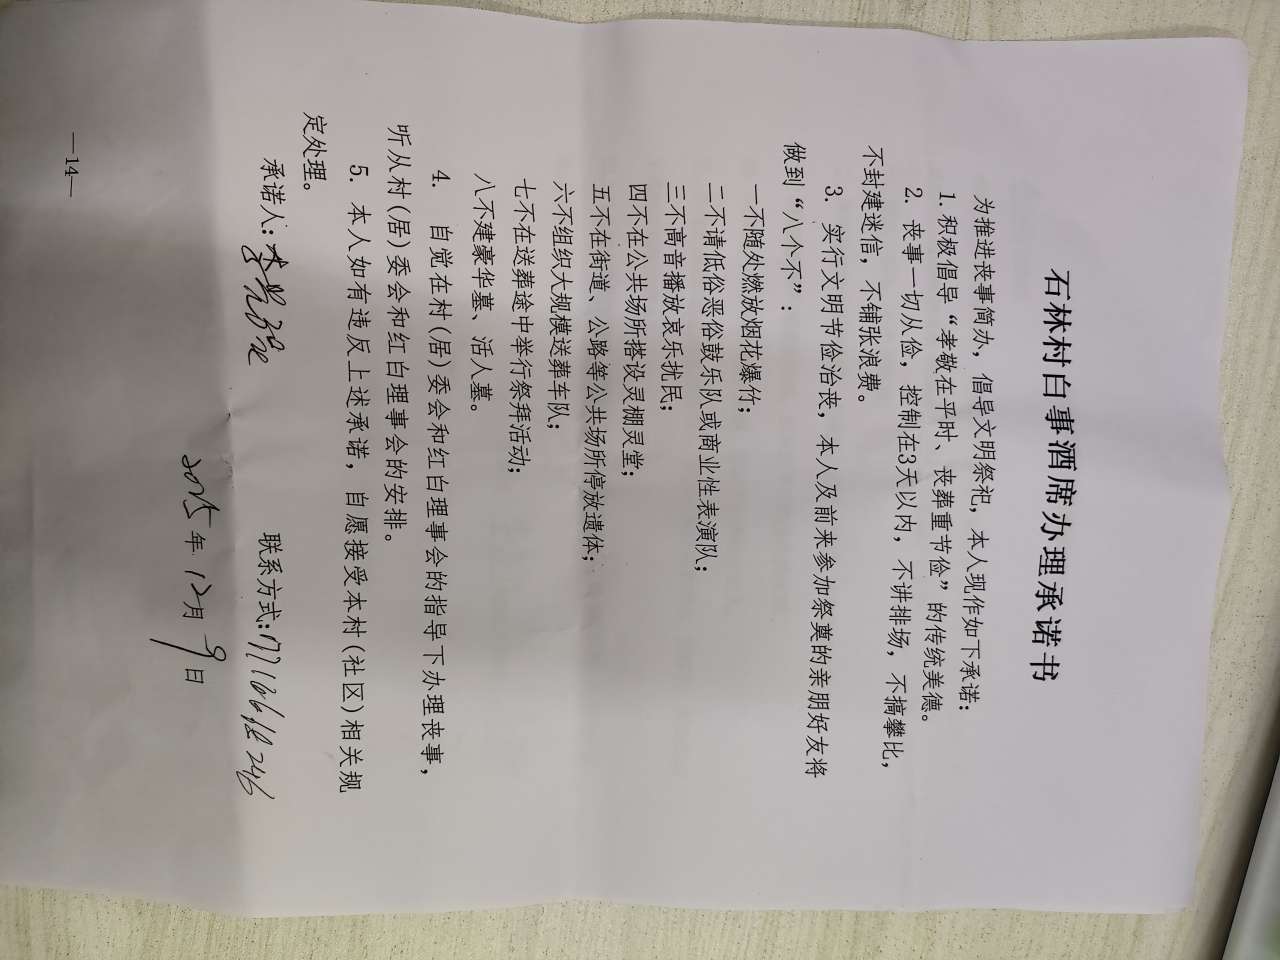 石林村白事酒席办理承诺书
为推进丧事简办，倡导文明祭祀，本人现作如下承诺：
1. 积极倡导“孝敬在平时、丧葬重节俭”的传统美德。
2. 丧事一切从俭，控制在3天以内，不讲排场，不搞攀比，
不封建迷信，不铺张浪费。
3. 实行文明节俭治丧，本人及前来参加祭奠的亲朋好友将
做到“八个不”：
一不随处燃放烟花爆竹；
二不请低俗恶俗鼓乐队或商业性表演队；
三不高音播放哀乐扰民；
四不在公共场所搭设灵棚灵堂；
五不在街道、公路等公共场所停放遗体；
六不组织大规模送葬车队；
七不在送葬途中举行祭拜活动；
八不建豪华墓、活人墓。
4. 自觉在村（居）委会和红白理事会的指导下办理丧事，
听从村（居）委会和红白理事会的安排。
5. 本人如有违反上述承诺，自愿接受本村（社区）相关规
定处理。
承诺人： 联系方式：
2025年12月9日
—14—